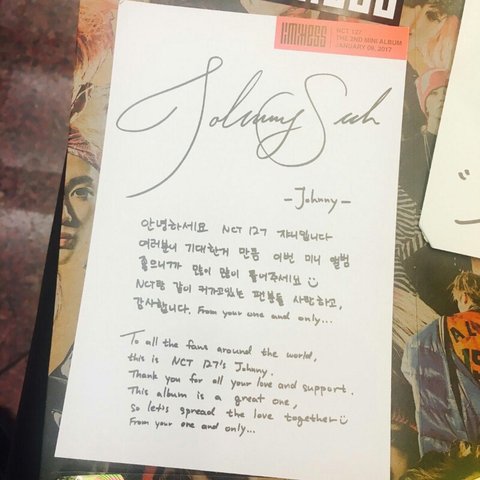 LIMITLESS
NCT 127
THE 2ND MINI ALBUM
JANUARY 06, 2017
Johnny Suh
- Johnny -
안녕하세요 NCT 127 쟈니입니다
여러분이 기대한거 만큼 이번 미니 앨범
좋으니까 많이 많이 들어주세요
NCT랑 같이 커가고있는 팬분들 사랑하고,
감사합니다. From your one and only...
To all the fans around the world,
this is NCT 127's Johnny.
Thank you for all your love and support.
This album is a great one,
so let's spread the love together
From your one and only...